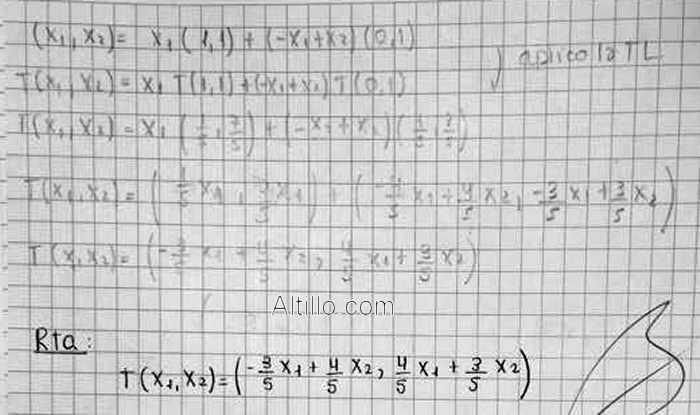 (x₁, x₂) = x₁ (1,1) + (-x₁+x₂) (0,1)
aplico la TL
T(x₁, x₂) = x₁ T(1,1) + (-x₁+x₂) T(0,1)
T(x₁, x₂) = x₁ (1/5, 7/5) + (-x₁+x₂)(4/5, 3/5)
T(x₁, x₂) = (1/5 x₁, 7/5 x₁) + (-4/5 x₁ + 4/5 x₂, -3/5 x₁ + 3/5 x₂)
T(x₁, x₂) = (-3/5 x₁ + 4/5 x₂, 4/5 x₁ + 3/5 x₂)
Altillo.com
Rta:
T(x₁, x₂) = (-3/5 x₁ + 4/5 x₂, 4/5 x₁ + 3/5 x₂)